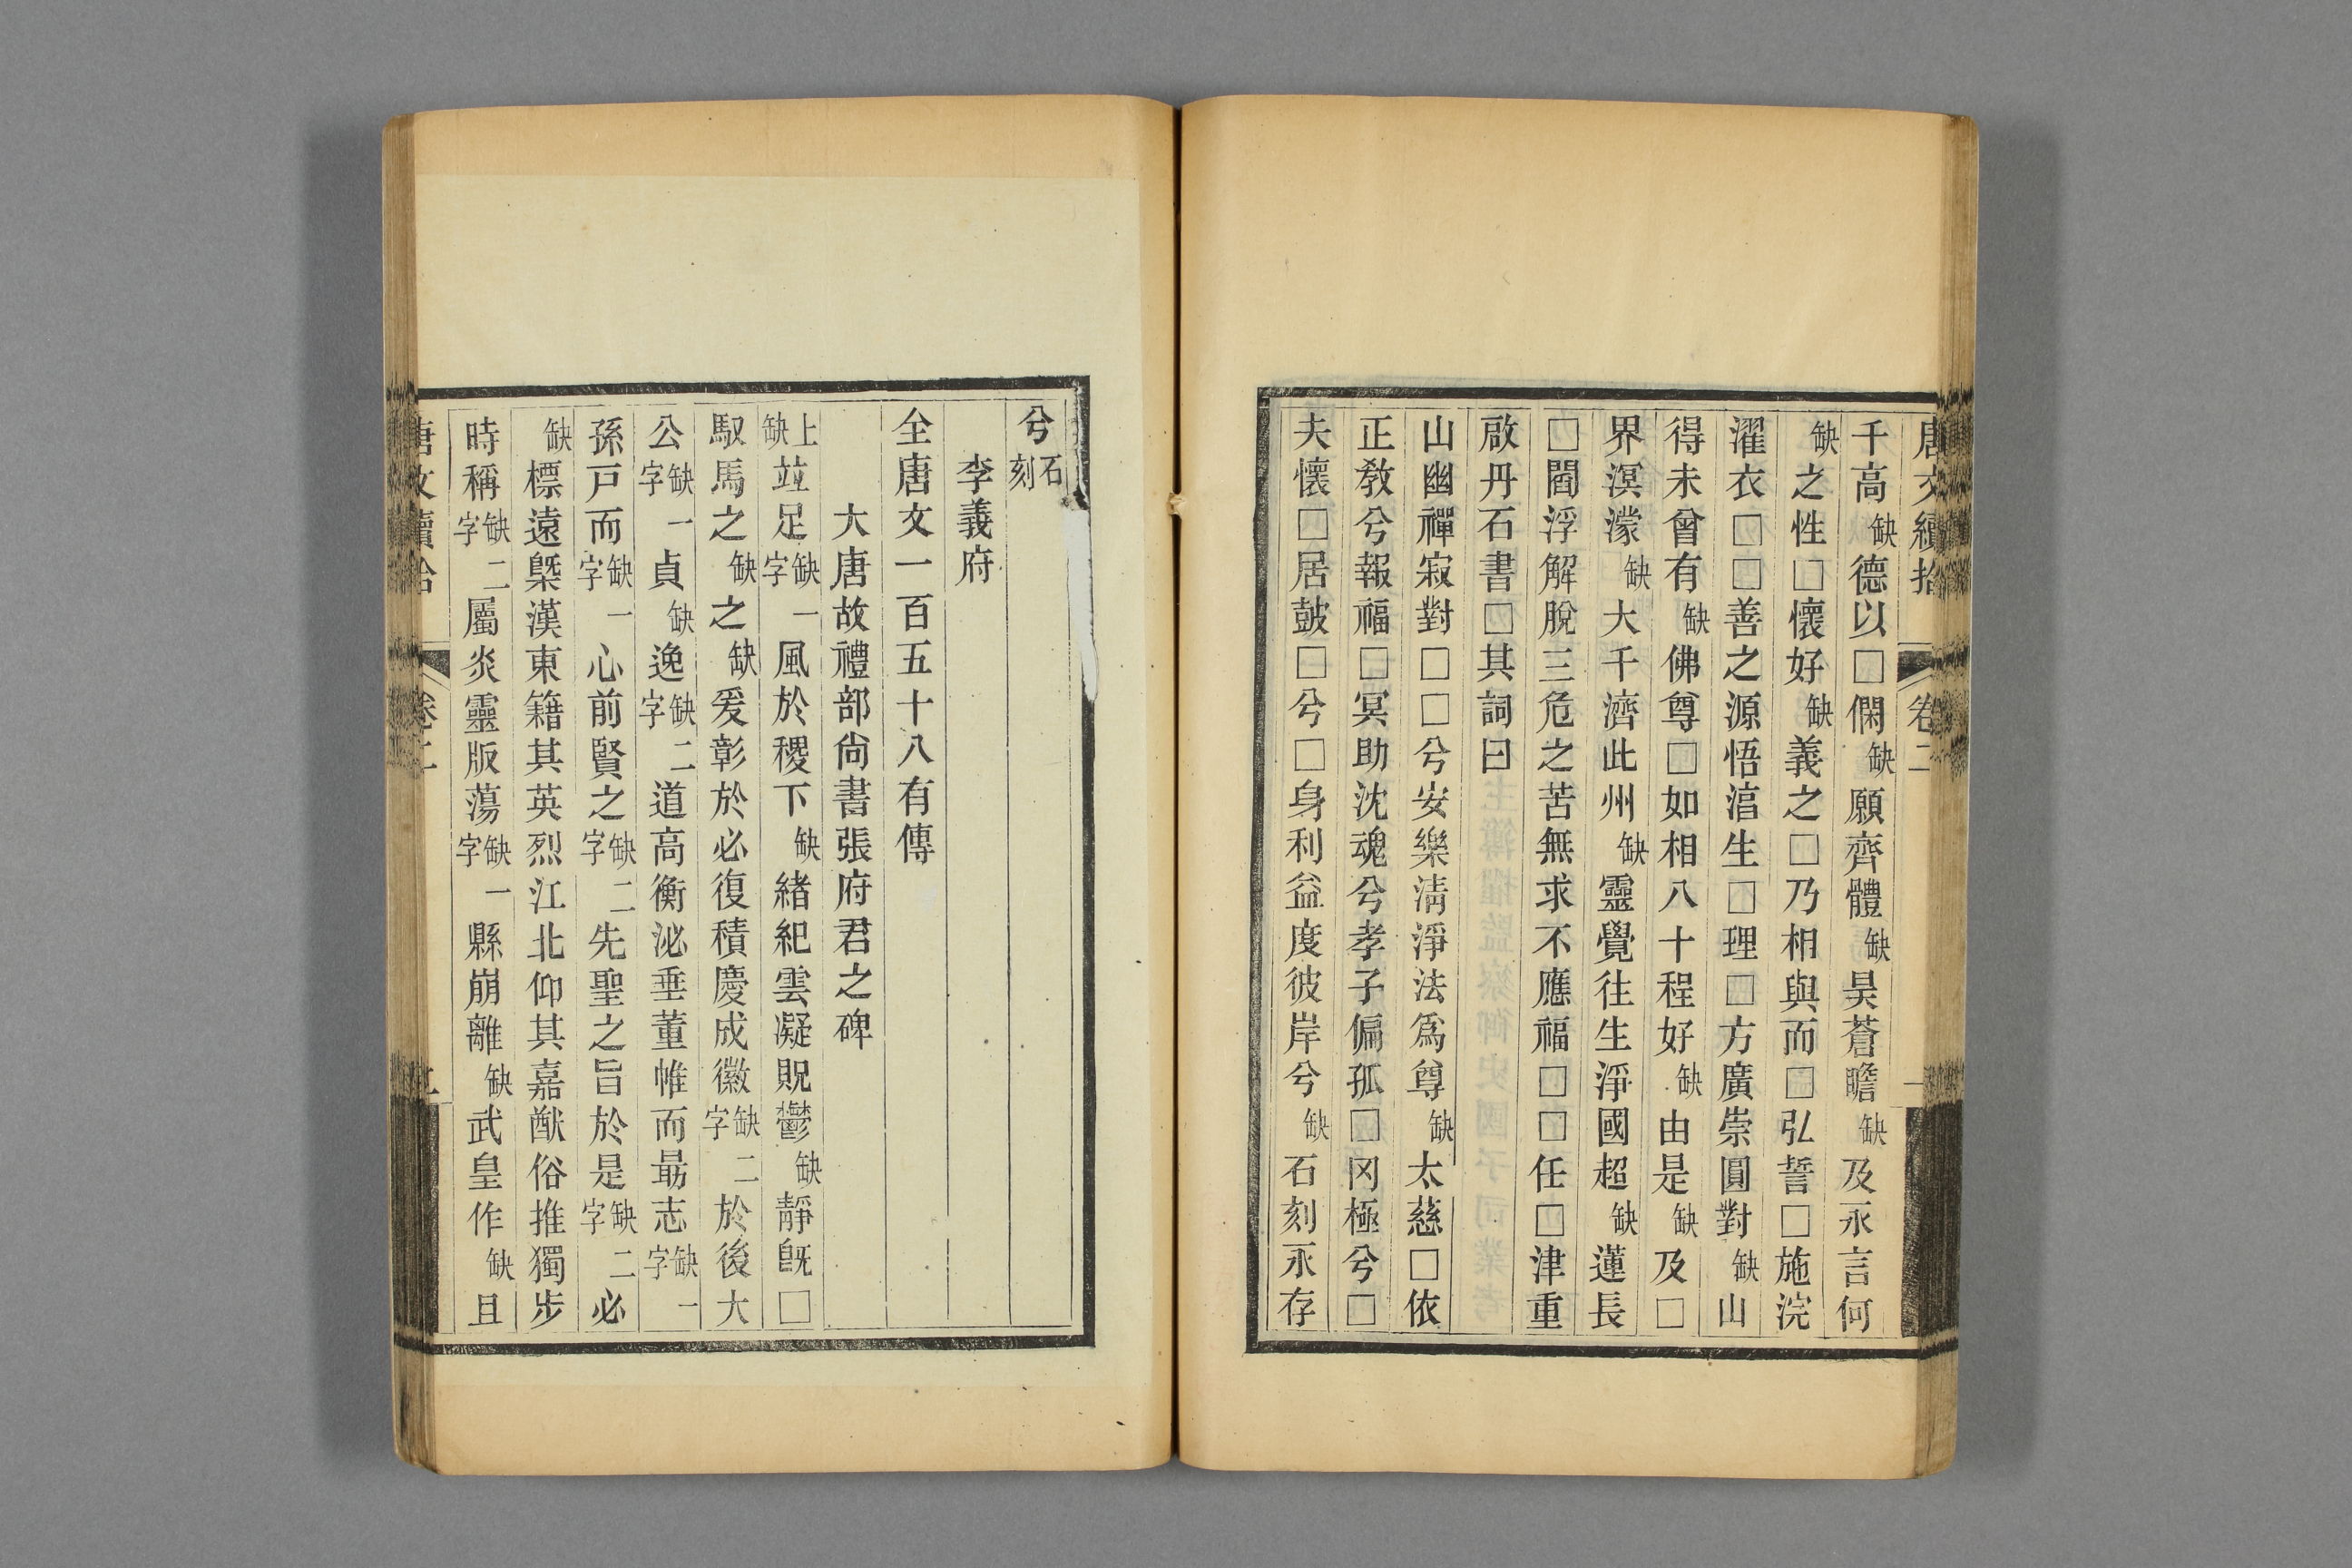 唐文續拾 卷二
千高缺德以□閑缺願齊體缺昊蒼瞻缺及永言何
缺之性□懷好缺義之□乃相與而□弘誓□施浣
濯衣□□善之源悟湻生□理□方廣崇圓對缺山
得未曾有缺佛尊□如相八十程好缺由是缺及□
界溟濛缺大千濟此州缺靈覺往生淨國超缺蓮長
□閻浮解脫三危之苦無求不應福□□任□津重
啟丹石書□其詞曰
山幽禪寂對□□兮安樂清淨法爲尊缺太慈□依
正教兮報福□冥助沈魂兮孝子偏孤□罔極兮□
夫懷□居皷□兮□身利益度彼岸兮缺石刻永存
兮石刻
李義府
全唐文一百五十八有傳
大唐故禮部尙書張府君之碑
上缺竝足缺一字風於稷下缺緒紀雲凝貺鬱缺靜旣□
馭馬之缺之缺爰彰於必復積慶成徽缺二字於後大
公缺一字貞缺逸缺二字道高衡泌垂董帷而最志缺一字
孫戸而缺一字心前賢之缺二字先聖之旨於是缺二字必
缺標遠槩漢東籍其英烈江北仰其嘉猷俗推獨步
時稱缺二字屬炎靈版蕩缺一字縣崩離缺武皇作缺且
唐文續拾 卷二